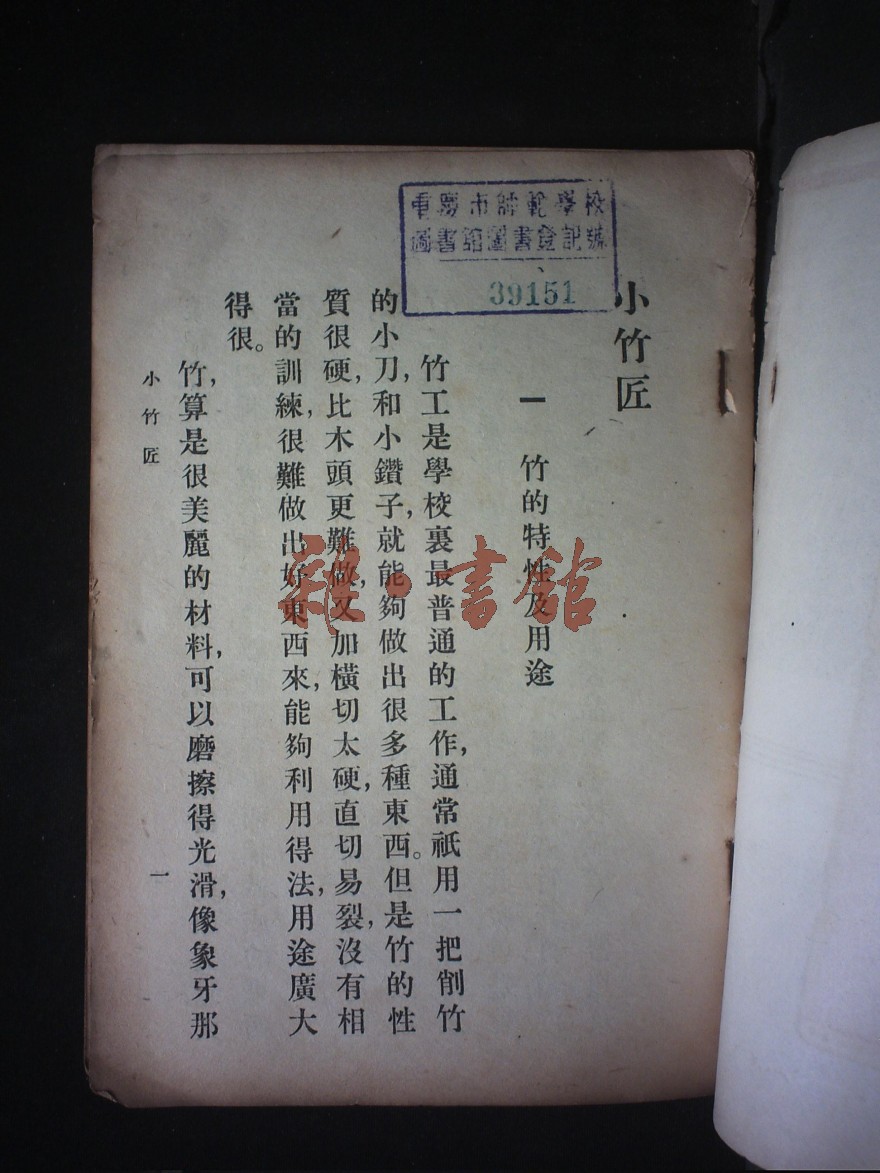 重慶市師範學校
圖書館圖書登記號
39151
小竹匠
一 竹的特性及用途
竹工是學校裏最普通的工作，通常祇用一把削竹
的小刀，和小鑽子，就能夠做出很多種東西。但是竹的性
質很硬，比木頭更難做，又加橫切太硬，直切易裂，沒有相
當的訓練，很難做出好東西來，能夠利用得法，用途廣大
得很。
竹，算是很美麗的材料，可以磨擦得光滑，像象牙那
小竹匠
一
雜·書館